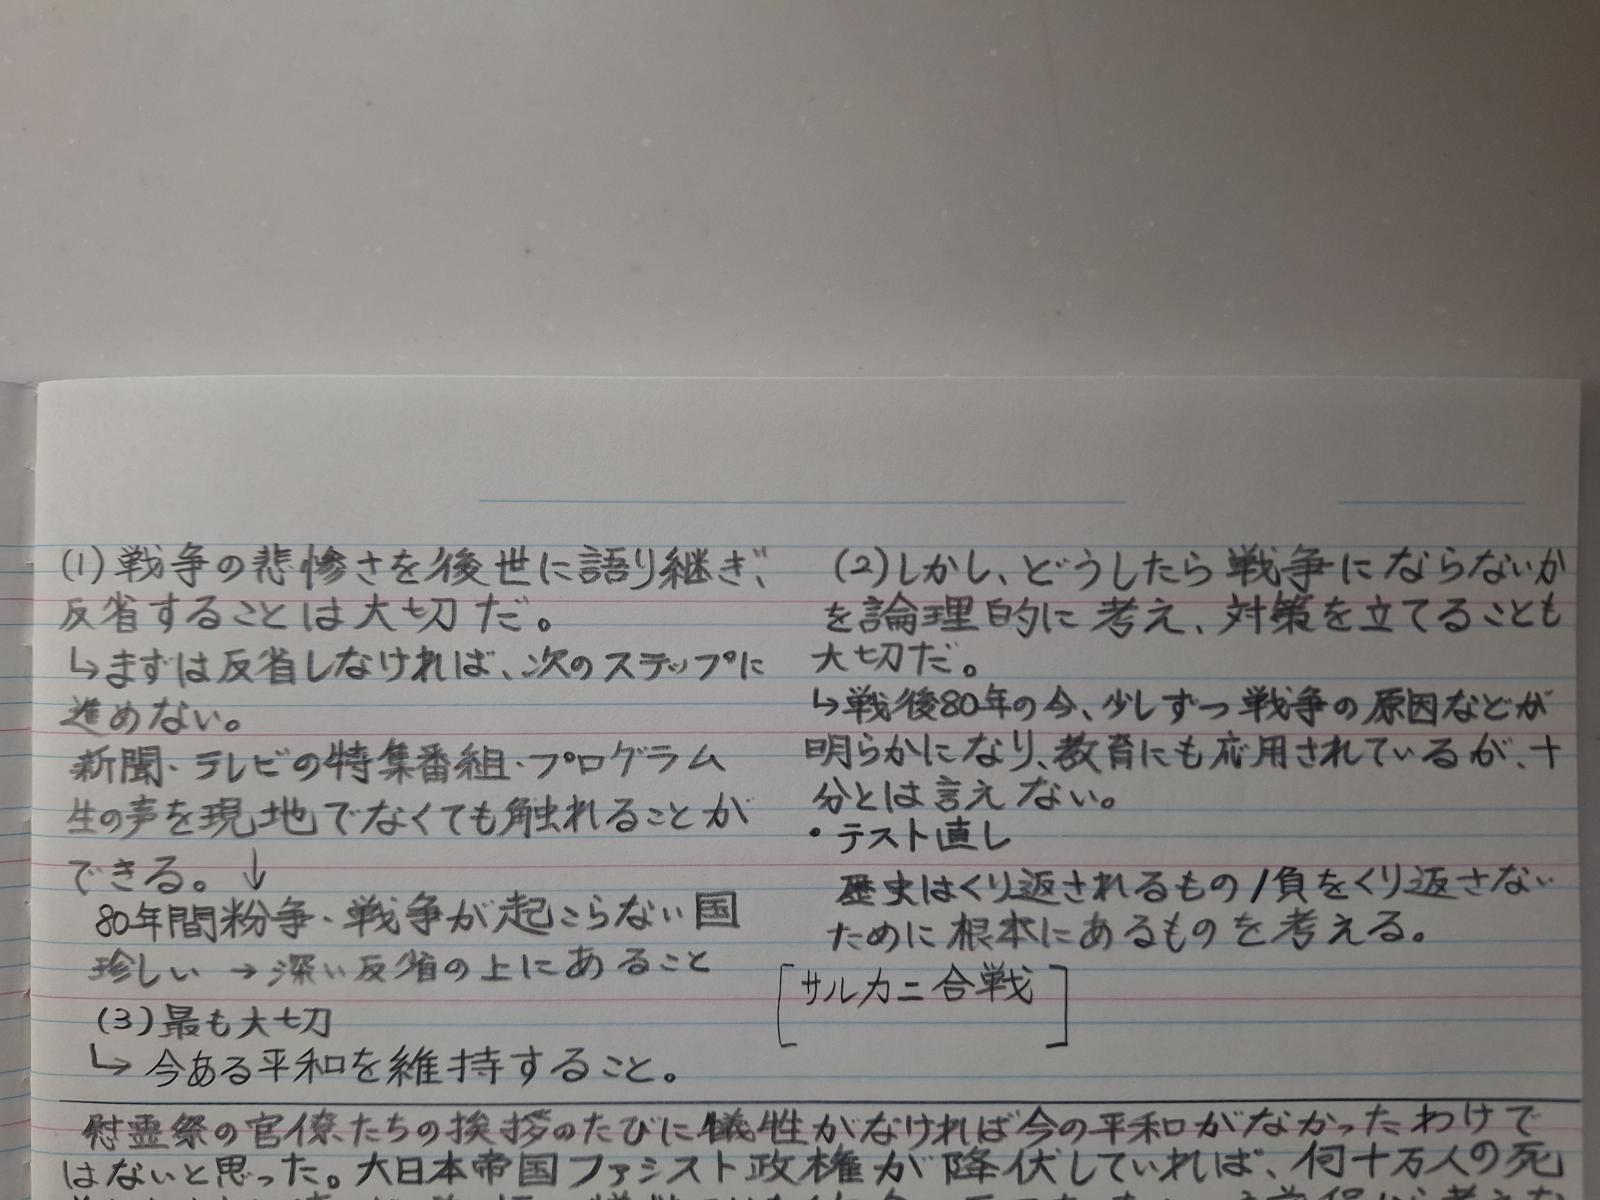 (1)戦争の悲惨さを後世に語り継ぎ、
反省することは大切だ。
↳まずは反省しなければ、次のステップに
進めない。
新聞・テレビの特集番組・プログラム
生の声を現地でなくても触れることが
できる。↓
80年間紛争・戦争が起こらない国
珍しい→深い反省の上にあること
(3)最も大切
↳今ある平和を維持すること。
(2)しかし、どうしたら戦争にならないか
を論理的に考え、対策を立てることも
大切だ。
↳戦後80年の今、少しずつ戦争の原因などが
明らかになり、教育にも応用されているが、十
分とは言えない。
・テスト直し
歴史はくり返されるもの/負をくり返さない
ために根本にあるものを考える。
[サルカニ合戦]
慰霊祭の官僚たちの挨拶のたびに犠牲がなければ今の平和がなかったわけで
はないと思った。大日本帝国ファシスト政権が降伏していれば、何十万人の死